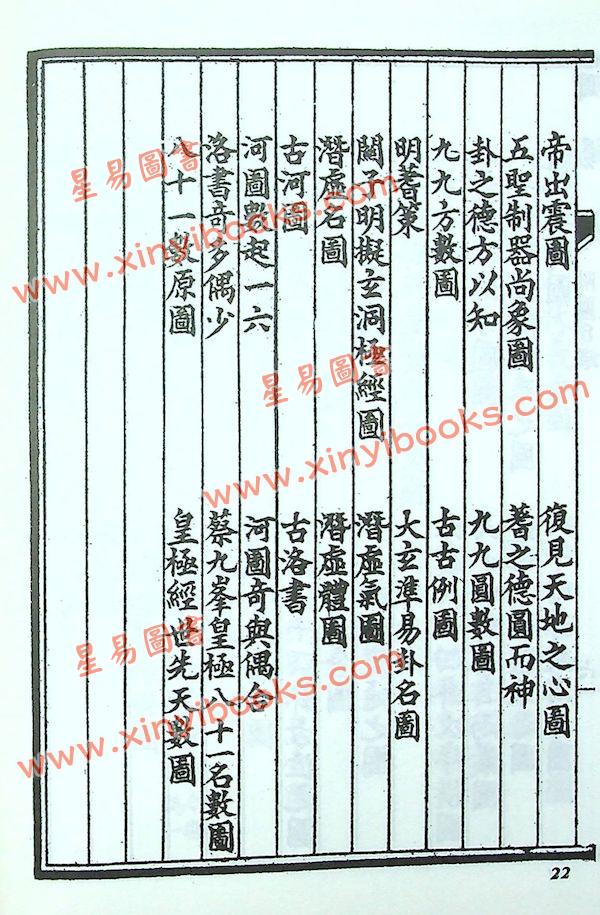 帝出震圖 復見天地之心圖
五聖制器尚象圖 蓍之德圓而神
卦之德方以知 九九圓數圖
九九方數圖 古古例圖
明蓍策 大玄準易卦名圖
關子明擬玄洞極經圖 潛虛氣圖
潛虛名圖 潛虛體圖
古河圖 古洛書
河圖數起一六 河圖奇與偶合
洛書奇多偶少 蔡九峯皇極八十一名數圖
八十一數原圖 皇極經世先天數圖
22
星易圖書
www.xinyibooks.com
星易圖書
www.xinyibooks.com
星易圖書
www.xinyibooks.com